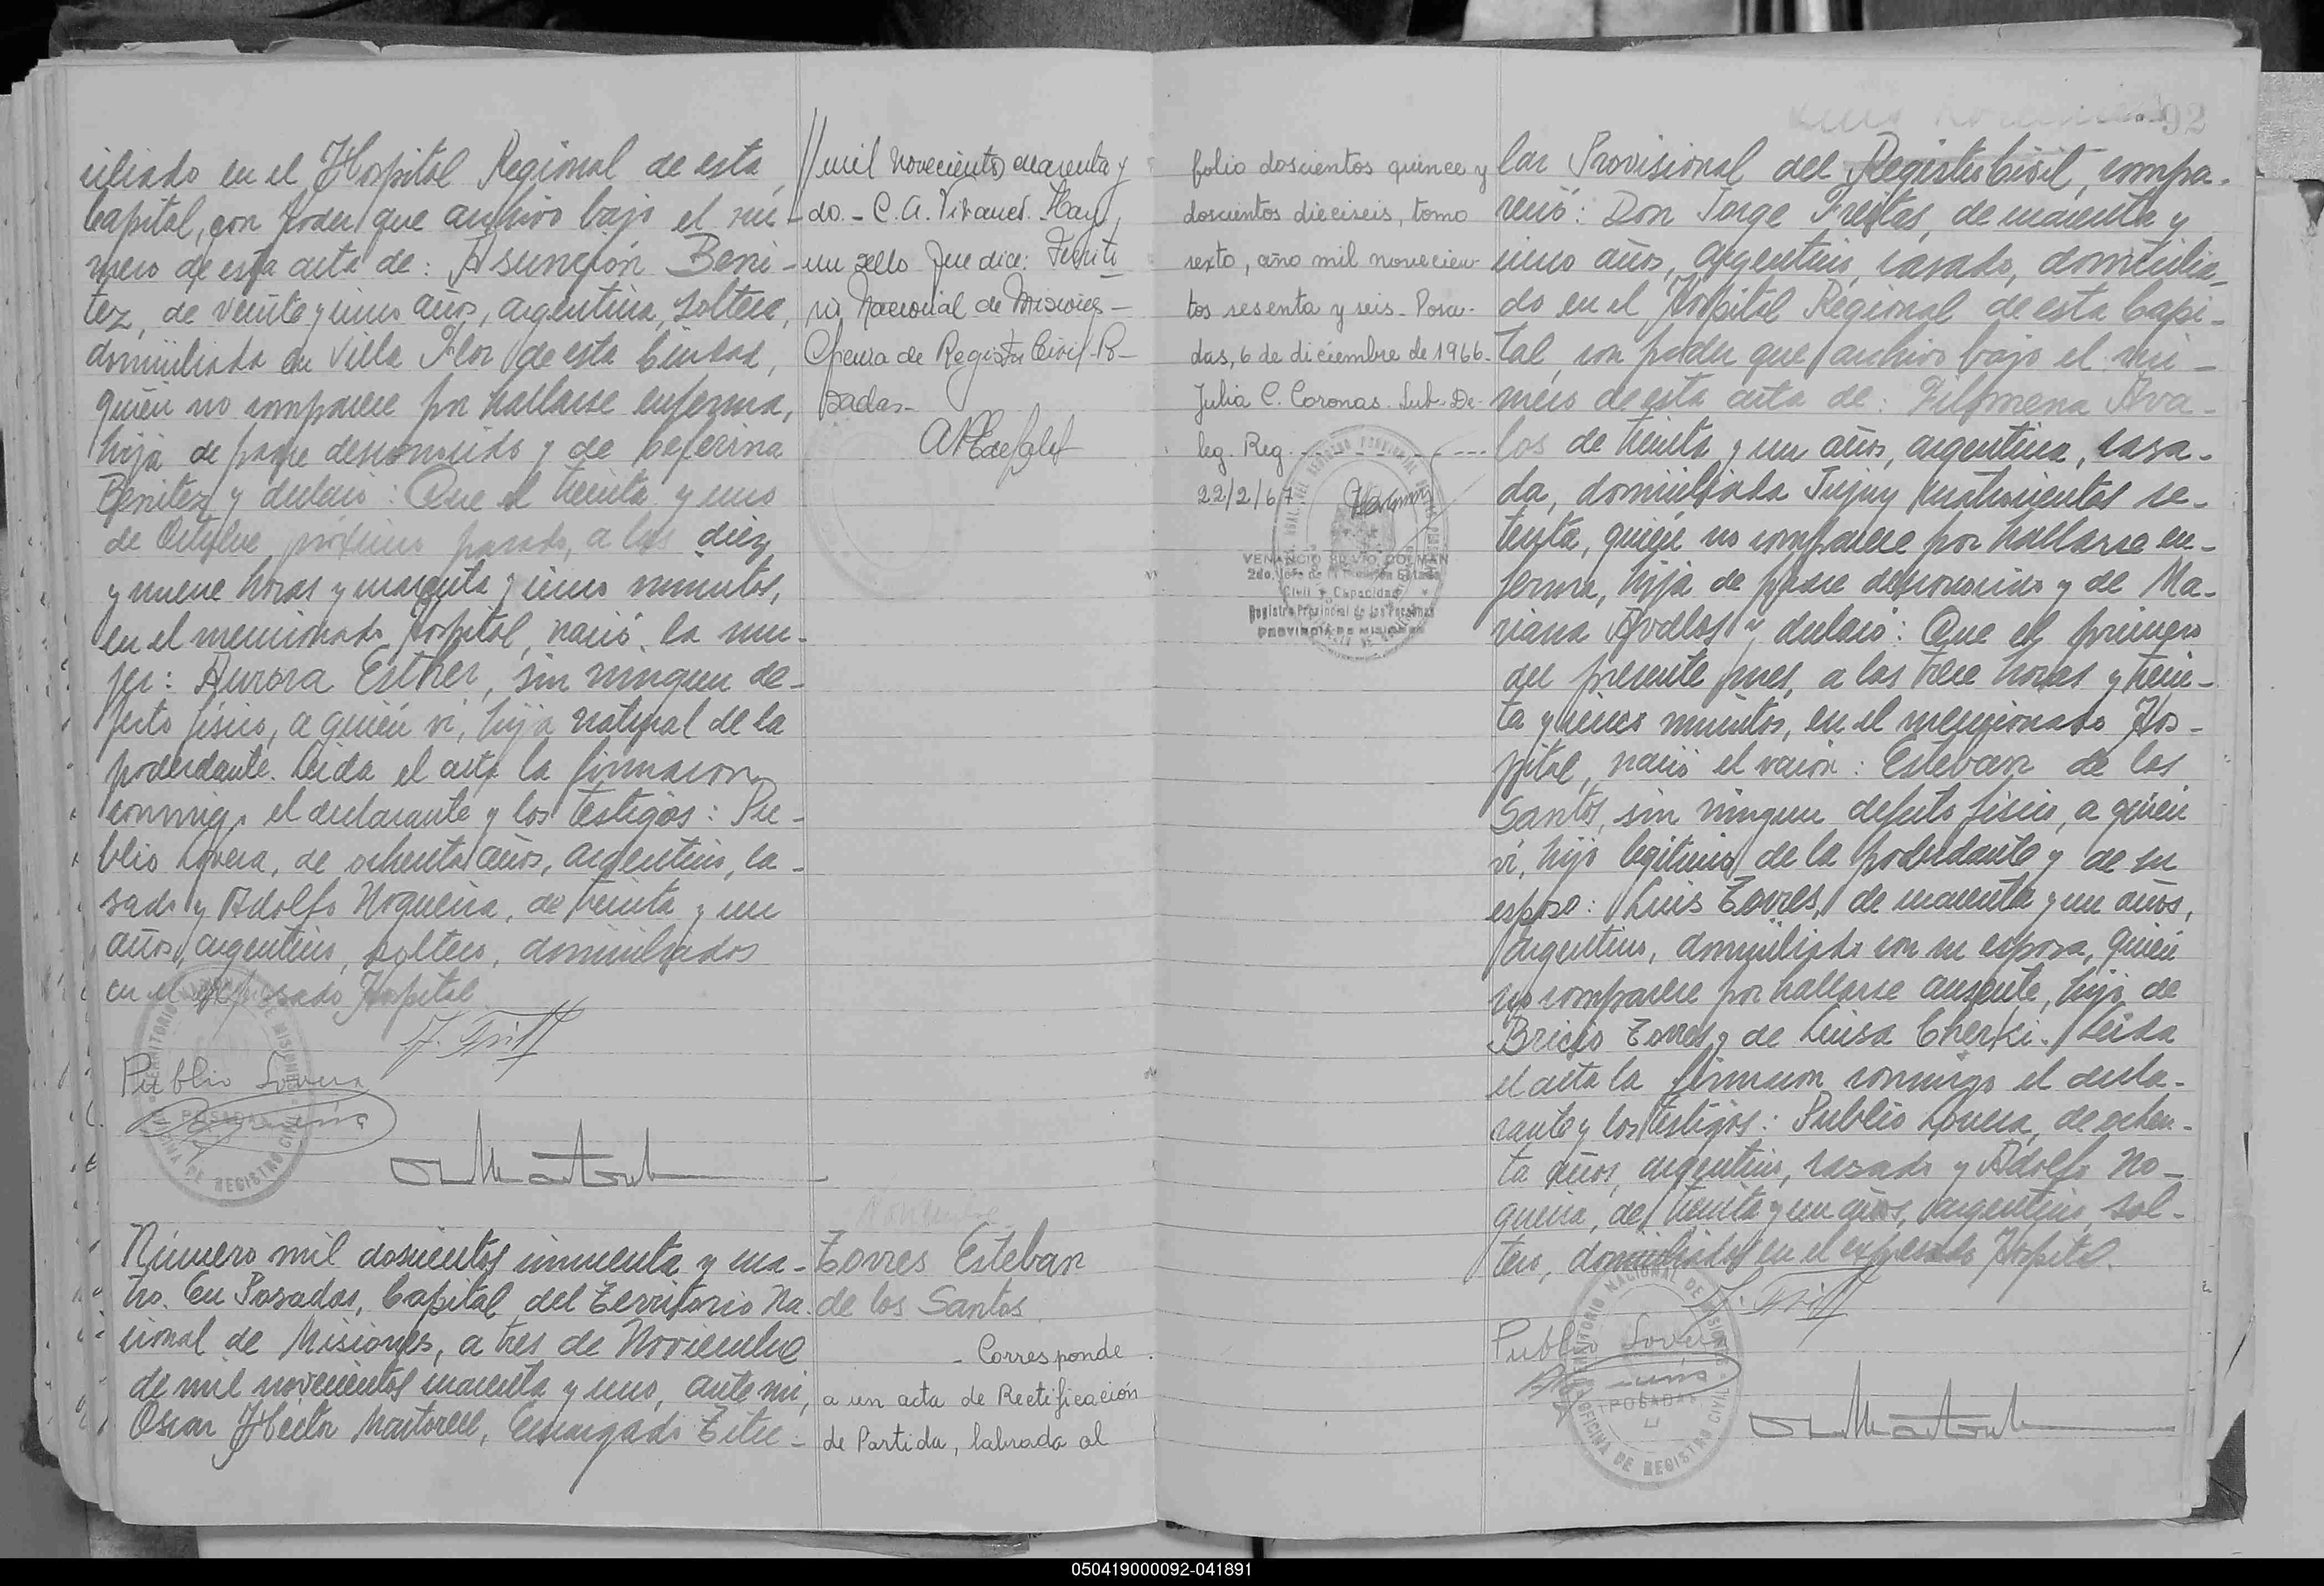 ciliado en el Hospital Regional de esta
Capital, con poder que archivo bajo el nú-
mero de esta acta de: Asunción Bení-
tez, de veinte y cinco años, argentina, soltera,
domiciliada en Villa Flor de esta Ciudad,
quién no comparece por hallarse enferma,
hija de padre desconocido y de Ceferina
Benitez y declaró: Que el treinta y uno
de Octubre próximo pasado, a las diez
y nueve horas y cuarenta y cinco minutos,
en el mencionado Hospital, nació la mu-
jer: Aurora Esther, sin ningun de-
fecto físico, a quién vi, hija natural de la
poderdante. Leida el acta la firmaron
conmigo el declarante y los testigos: Pu-
blio Lovera, de ochenta años, argentino, ca-
sado y Adolfo Nogueira, de treinta y un
años, argentino, soltero, domiciliados
en el expresado Hospital.
Publio Lovera
TERRITORIO NACIONAL DE MISIONES
POSADAS
OFICINA DE REGISTRO CIVIL
Número mil doscientos cincuenta y cua-
tro. En Posadas, Capital del Territorio Na-
cional de Misiones, a tres de Noviembre
de mil novecientos cuarenta y uno, ante mi,
Oscar Héctor Martorell, Encargado Titu-
//mil novecientos cuarenta y
do. - C. A. Hay
un sello que dice: Territo
rio Nacional de Misiones -
Oficina de Registro Civil - Po-
sadas -
Torres Esteban
de los Santos.
- Corresponde
a un acta de Rectificación
de Partida, labrada al
folio doscientos quince y
doscientos dieciseis, tomo
sexto, año mil novecien-
tos sesenta y seis - Posa-
das, 6 de diciembre de 1966.
Julia C. Coronas. Sub-De-
leg. Reg.
22/2/67
2do. Jefe de la División Estado
Civil y Capacidad
Registro Provincial de las Personas
PROVINCIA DE MISIONES
92
lar Provisional del Registro Civil, compa-
reció: Don Jorge Freitas, de cuarenta y
cinco años, argentino, casado, domicilia-
do en el Hospital Regional de esta Capi-
tal, con poder que archivo bajo el nú-
mero de esta acta de: Filomena Ava-
los de treinta y un años, argentina, casa-
da, domiciliada Jujuy cuatrocientos se-
tenta, quién no comparece por hallarse en-
ferma, hija de padre desconocido y de Ma-
riana Avalos y declaró: Que el primero
del presente mes, a las trece horas y trein-
ta y cinco minutos, en el mencionado Hos-
pital, nació el varón: Esteban de los
Santos, sin ningun defecto físico, a quién
vi, hijo legitimo de la poderdante y de su
esposo: Luis Torres, de cuarenta y un años,
argentino, domiciliado con su esposa, quién
no comparece por hallarse ausente, hijo de
Bricio Torres y de Luisa Cherki. Leida
el acta la firmaron conmigo el decla-
rante y los testigos: Publio Lovera, de ochen-
ta años, argentino, casado y Adolfo No-
gueira, de treinta y un años, argentino, sol-
tero, domiciliados en el expresado Hospital.
Publio Lovera
TERRITORIO NACIONAL DE MISIONES
POSADAS
OFICINA DE REGISTRO CIVIL
050419000092-041891